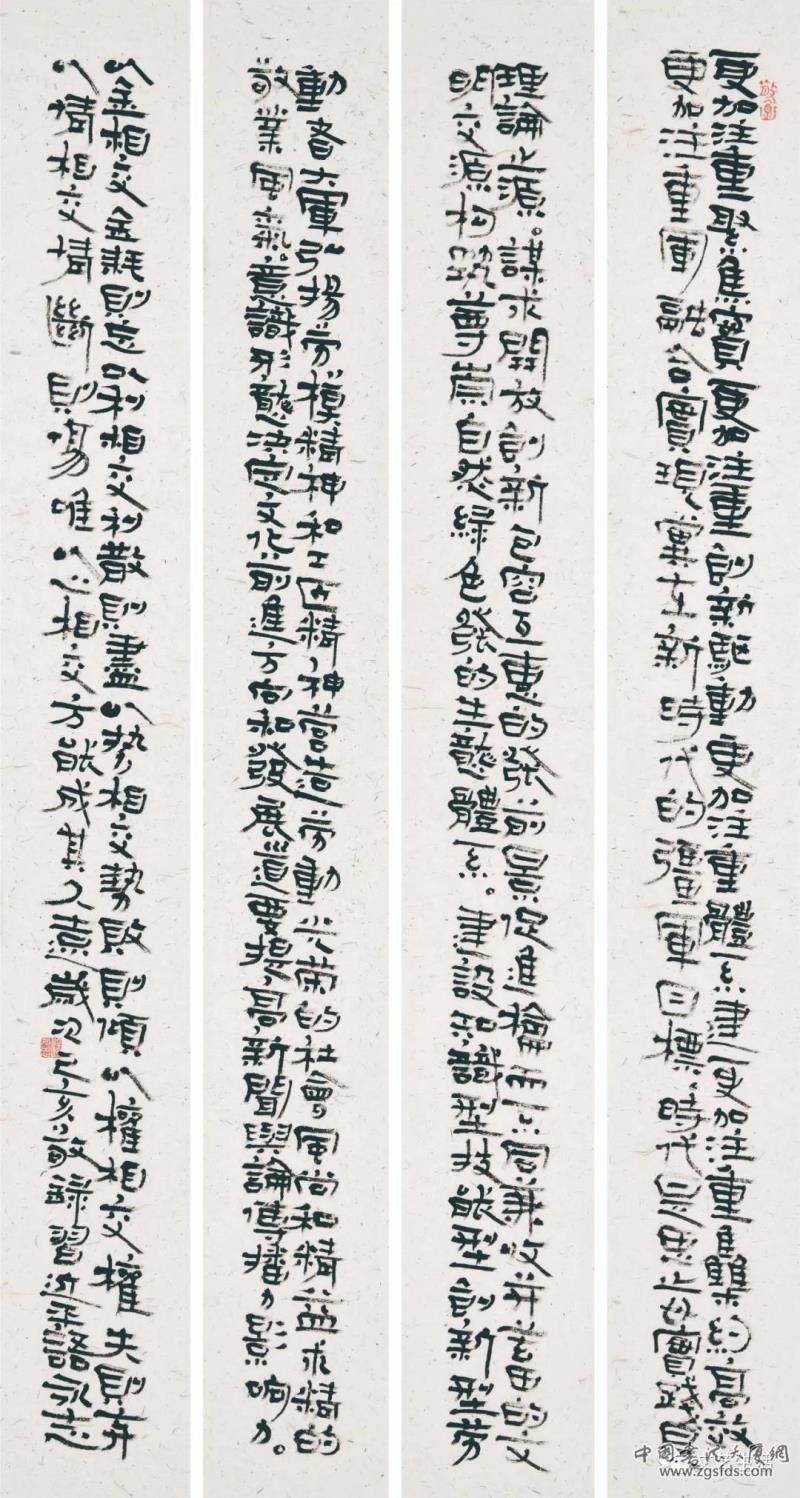 更加注重聚焦實更加注重創新驅動更加注重體系建更加注重集約高效
更加注重軍融合實現黨在新時代的強軍目標。時代是思之母實踐是
理論之源。謀求開放創新包容互惠的發前景促進而不同兼收并蓄的文
明交源构筑尊崇自然綠色發的生態體系。建設知識型技能型創新型勞
動者大軍弘揚勞模精神和工匠精神營造勞動光荣的社會風尚和精益求精的
敬業風氣。意識形態決定文化前進方向和發展道要提高新聞輿論傳播力影响力。
以金相交金耗則忘以利相交利散則盡以勢相交勢敗則傾以權相交權失則弃
以情相交情斷則傷唯以心相交方能成其久遠歲次己亥敬録習近平語永志
中國書法大廈網
www.zgsfds.com